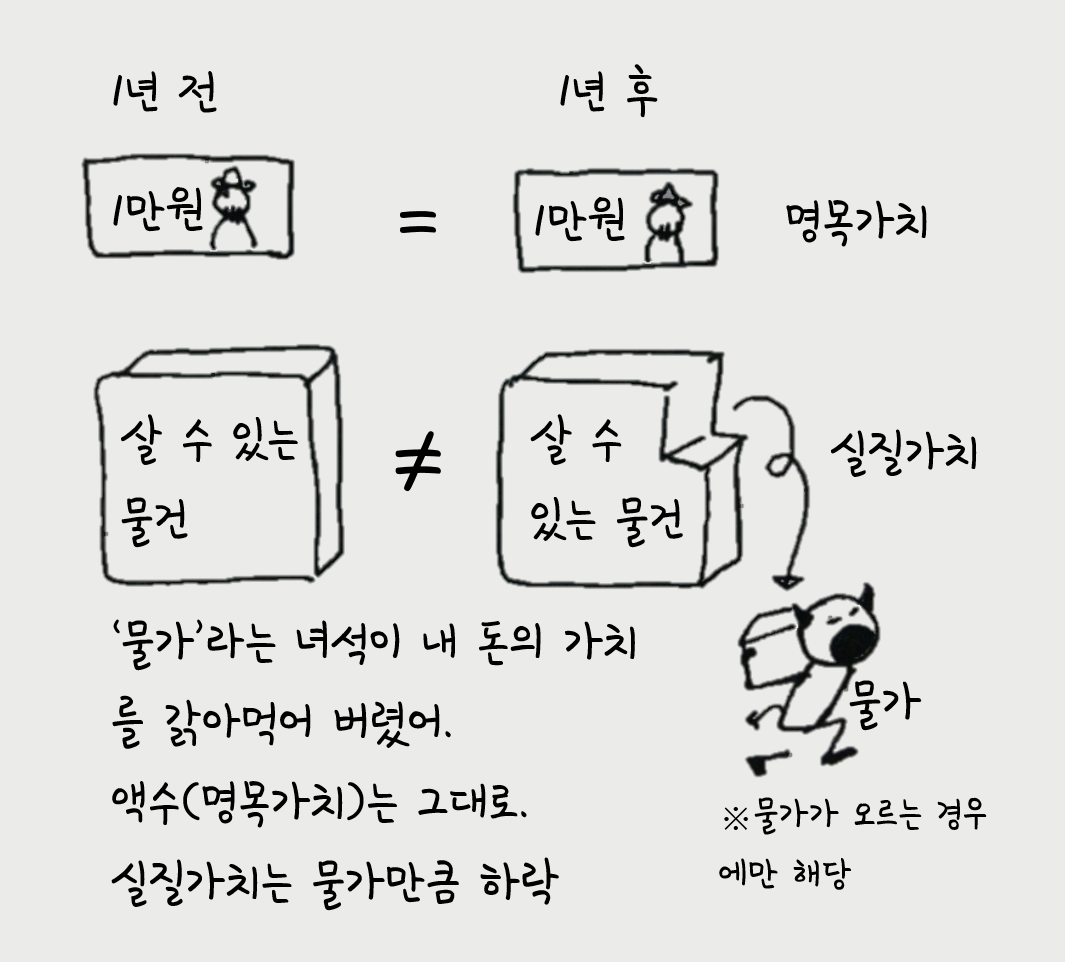 1년 전
1년 후
1만원
=
1만원
명목가치
살 수 있는
물건
≠
살 수
있는 물건
실질가치
‘물가’라는 녀석이 내 돈의 가치
를 갉아먹어 버렸어.
액수(명목가치)는 그대로.
실질가치는 물가만큼 하락
물가
※물가가 오르는 경우
에만 해당